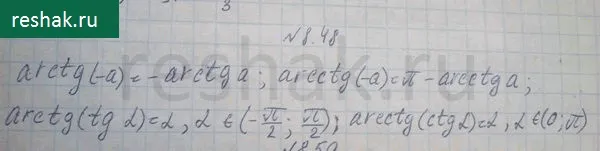 reshak.ru
№8.48
arctg(-a)=-arctg a; arcctg(-a)=π-arcctg a;
arctg(tg α)=α, α ∈ (-π/2; π/2); arcctg(ctg α)=α, α ∈(0; π)